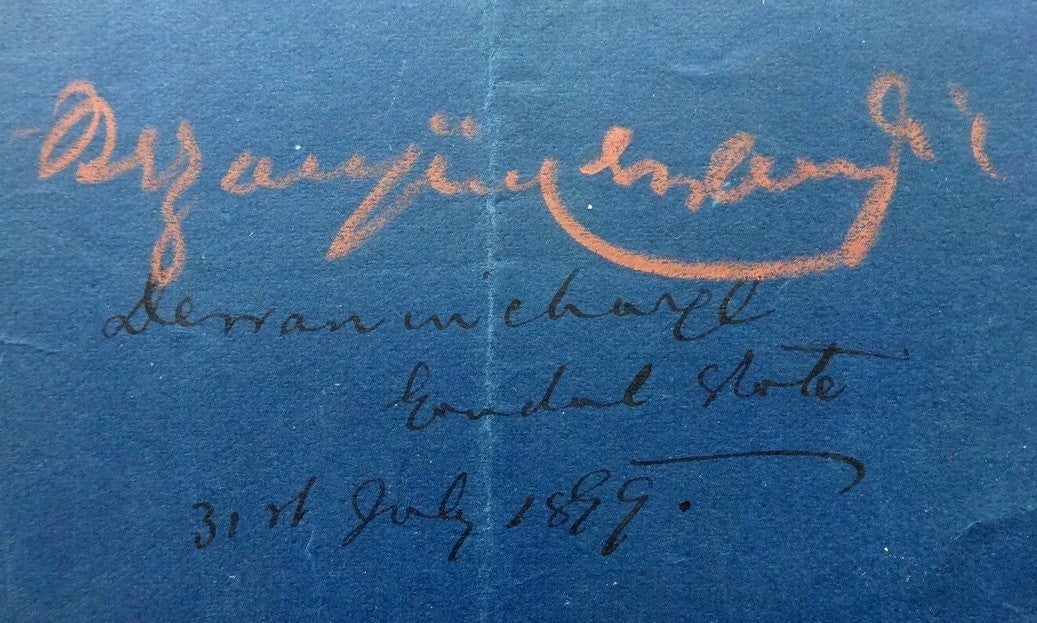 Bezonji
Dewan in charge
Gondal State
31st July 1899.